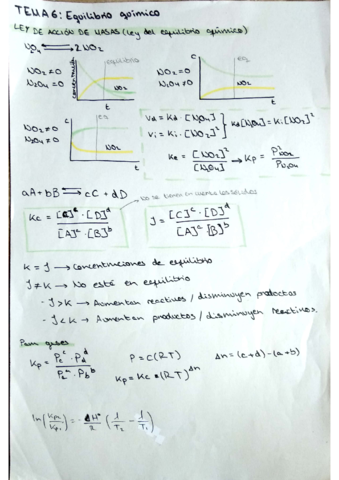 TEMA 6: Equilibrio químico
LEY DE ACCIÓN DE MASAS (ley del equilibrio químico)
N₂O₄ ⇌ 2NO₂
NO₂ = 0
N₂O₄ ≠ 0
concentración
equilibrio
NO₂
t
NO₂ ≠ 0
N₂O₄ = 0
C
eq
NO₂
t
NO₂ ≠ 0
N₂O₄ ≠ 0
C
eq
NO₂
t
Vd = Kd · [N₂O₄]
Vi = Ki · [NO₂]²
Kd[N₂O₄] = Ki[NO₂]²
Kc = [NO₂]² / [N₂O₄] → Kp = P²NO₂ / PN₂O₄
aA + bB ⇌ cC + dD
No se tienen en cuenta los sólidos
Kc = [C]ᶜ · [D]ᵈ / [A]ᵃ · [B]ᵇ
J = [C]ᶜ · [D]ᵈ / [A]ᵃ · [B]ᵇ
K = J → Concentraciones de equilibrio
J ≠ K → No está en equilibrio
- J > K → Aumentan reactivos / disminuyen productos
- J < K → Aumentan productos / disminuyen reactivos.
Para gases
Kp = Pcᶜ · Pdᵈ / Paᵃ · Pbᵇ
P = C(RT)
Δn = (c+d) - (a+b)
Kp = Kc · (RT)^Δn
ln(Kp₂/Kp₁) = - ΔHº/R (1/T₂ - 1/T₁)